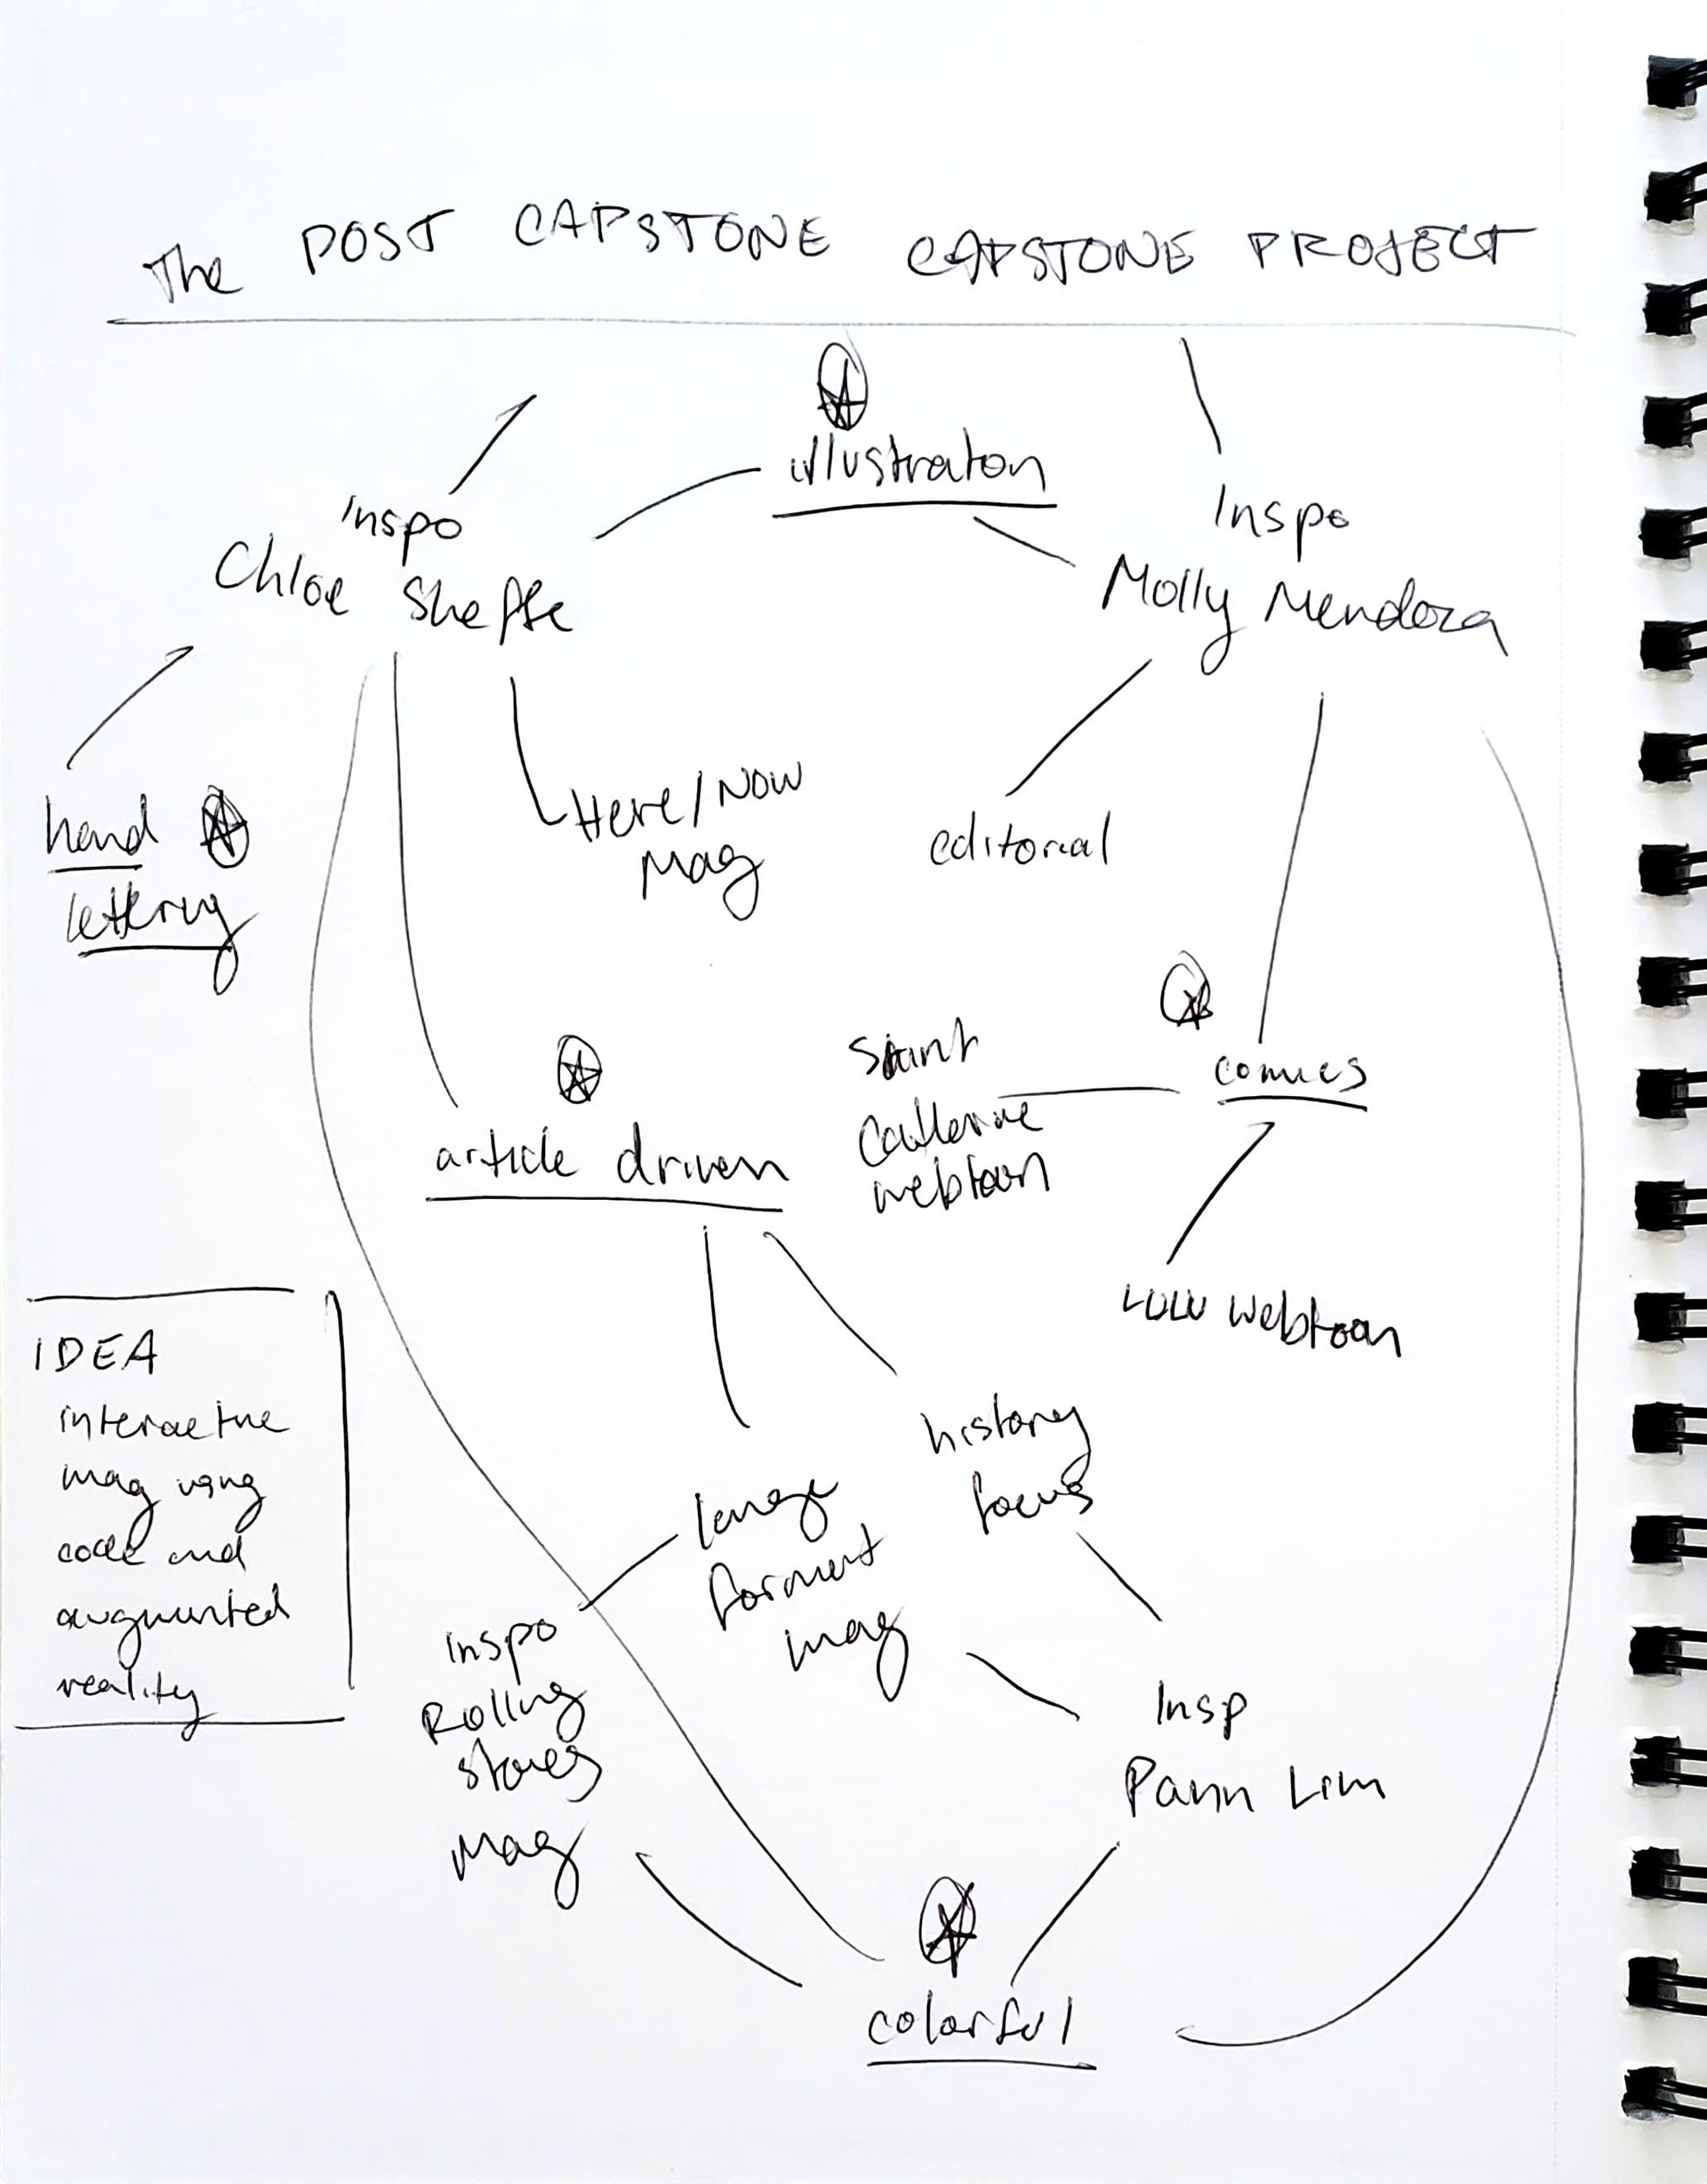 The POST CAPSTONE CAPSTONE PROJECT
illustraton
Inspo
Chloe Sheffe
Inspo
Molly Mendoza
hand
lettering
Here/Now
Mag
editorial
Saint
Catherine
webtoon
comics
article driven
LULU Webtoon
IDEA
interactive
mag using
code and
augmented
reality
history
focus
large
format
mag
Inspo
Rolling
stones
Mag
Insp
Pann Lim
colorful